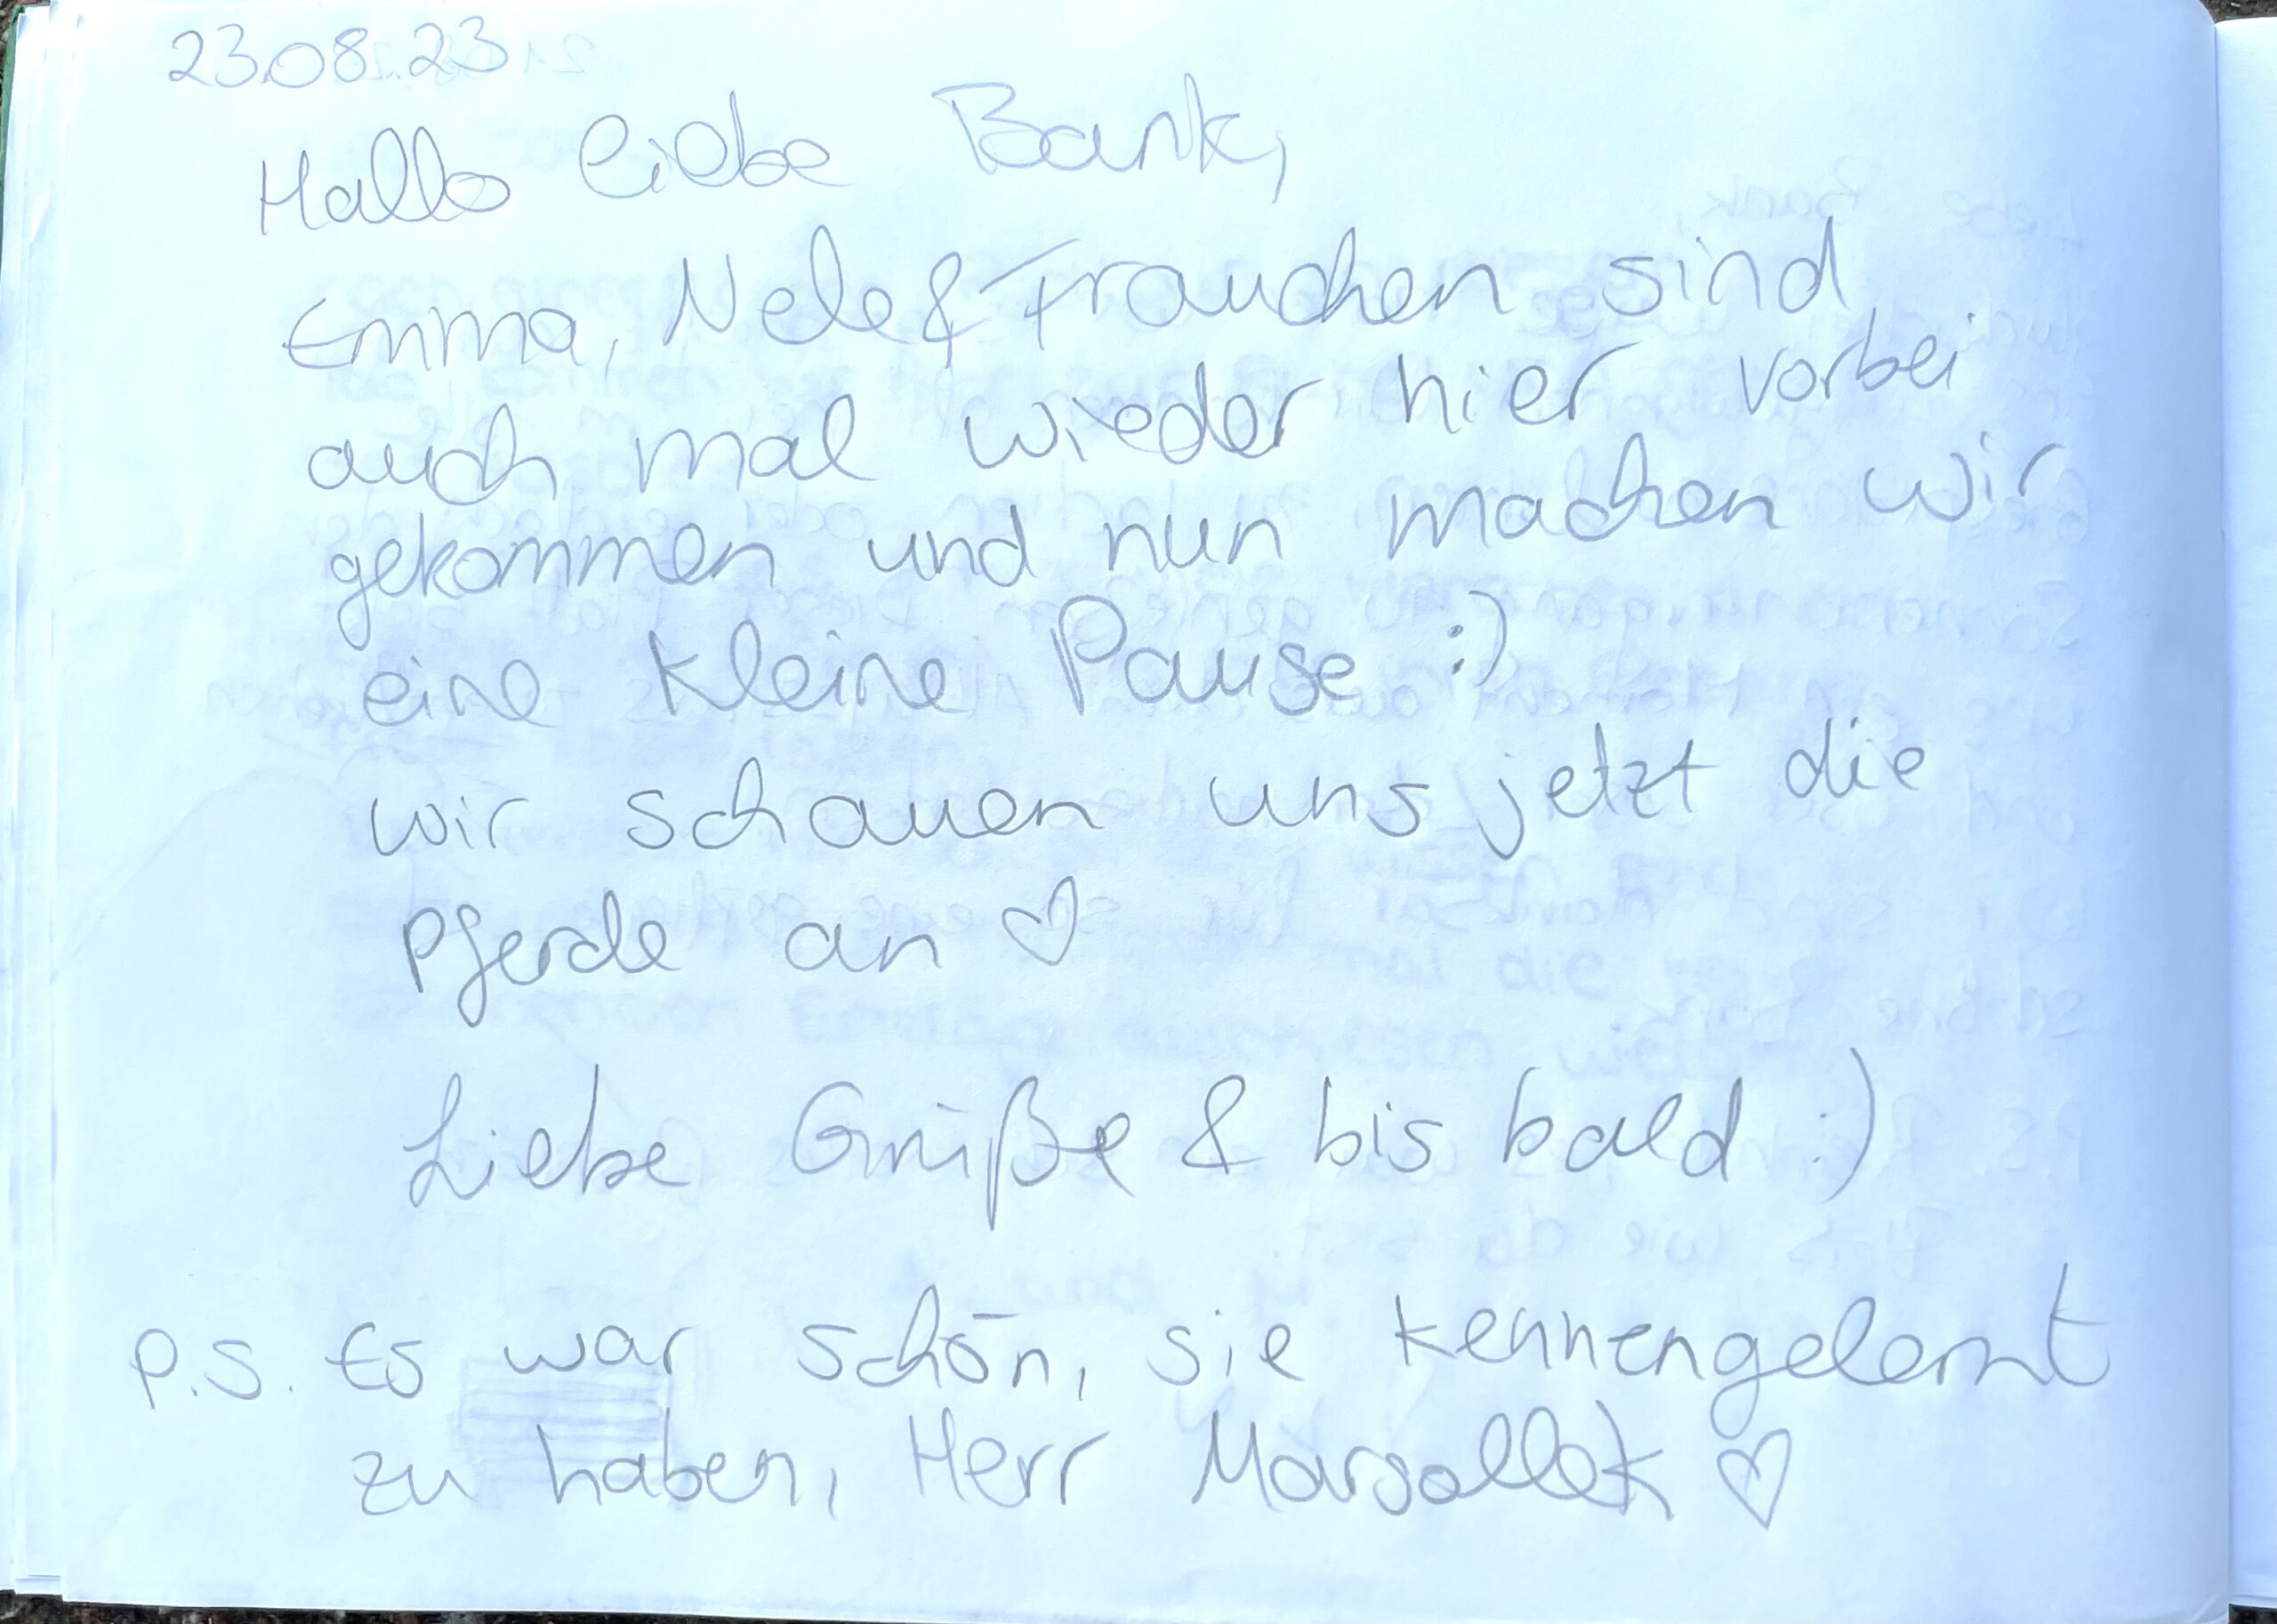 23.08.23
Hallo liebe Bank,
Emma, Nele & Frauchen sind
auch mal wieder hier vorbei
gekommen und nun machen wir
eine kleine Pause :)
wir schauen uns jetzt die
Pferde an ♡
Liebe Grüße & bis bald :)
P.S. Es war schön, sie kennengelernt
zu haben, Herr Marsollek ♡